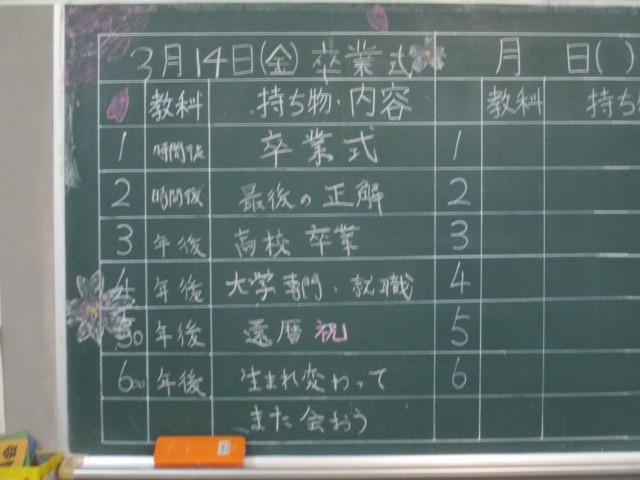 3月14日(金) 卒業式 月 日( )
教科 持ち物・内容 教科
1 時間後 卒業式 1
2 時間後 最後の正解 2
3 年後 高校卒業 3
4 年後 大学専門・就職 4
50 年後 還暦祝 5
600 年後 生まれ変わって 6
また会おう